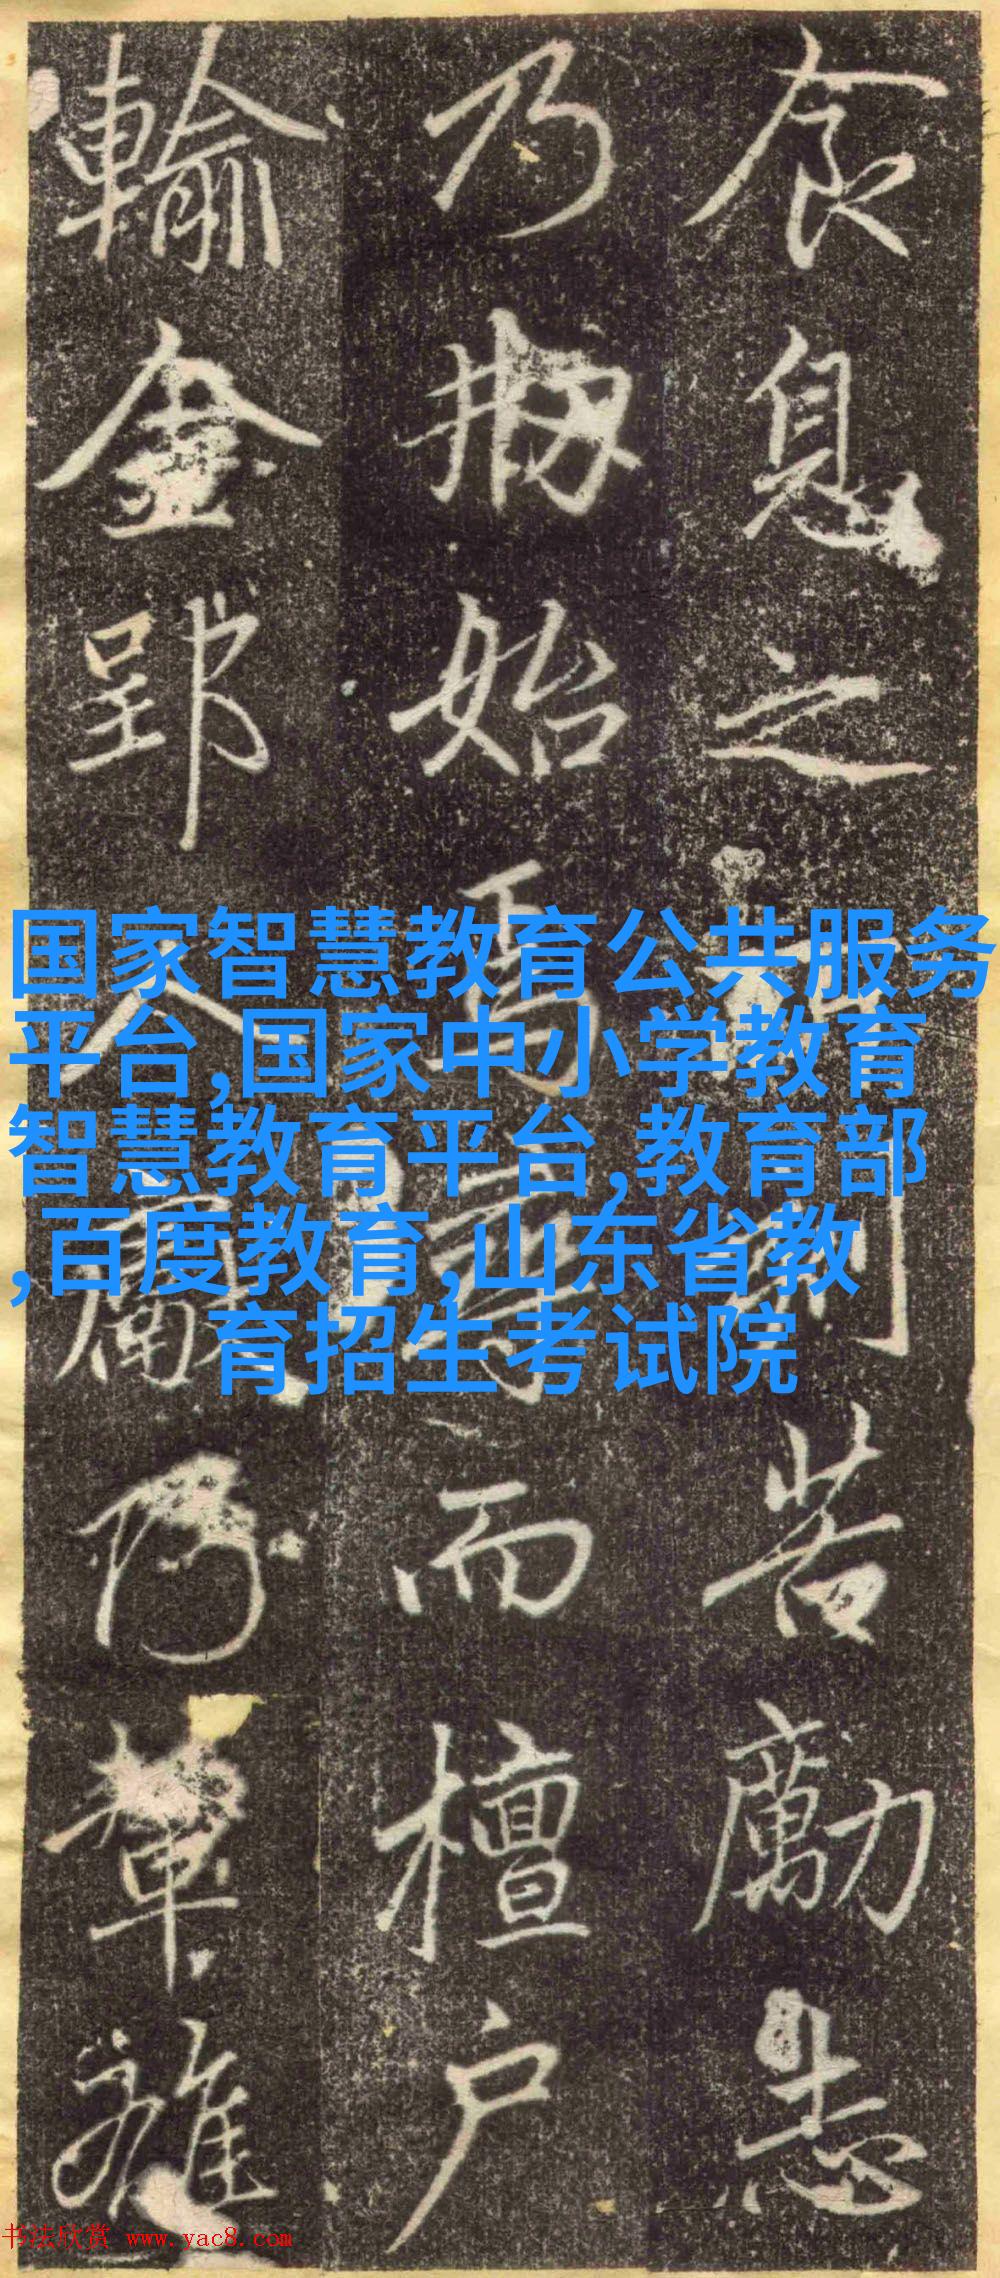 食息之
苦勵志
乃
始
而檀户
輸金郢
人屬
輦雖
国家智慧教育公共服务
平台,国家中小学教育
智慧教育平台,教育部
,百度教育,山东省教
育招生考试院
书法欣赏 www.yac8.com